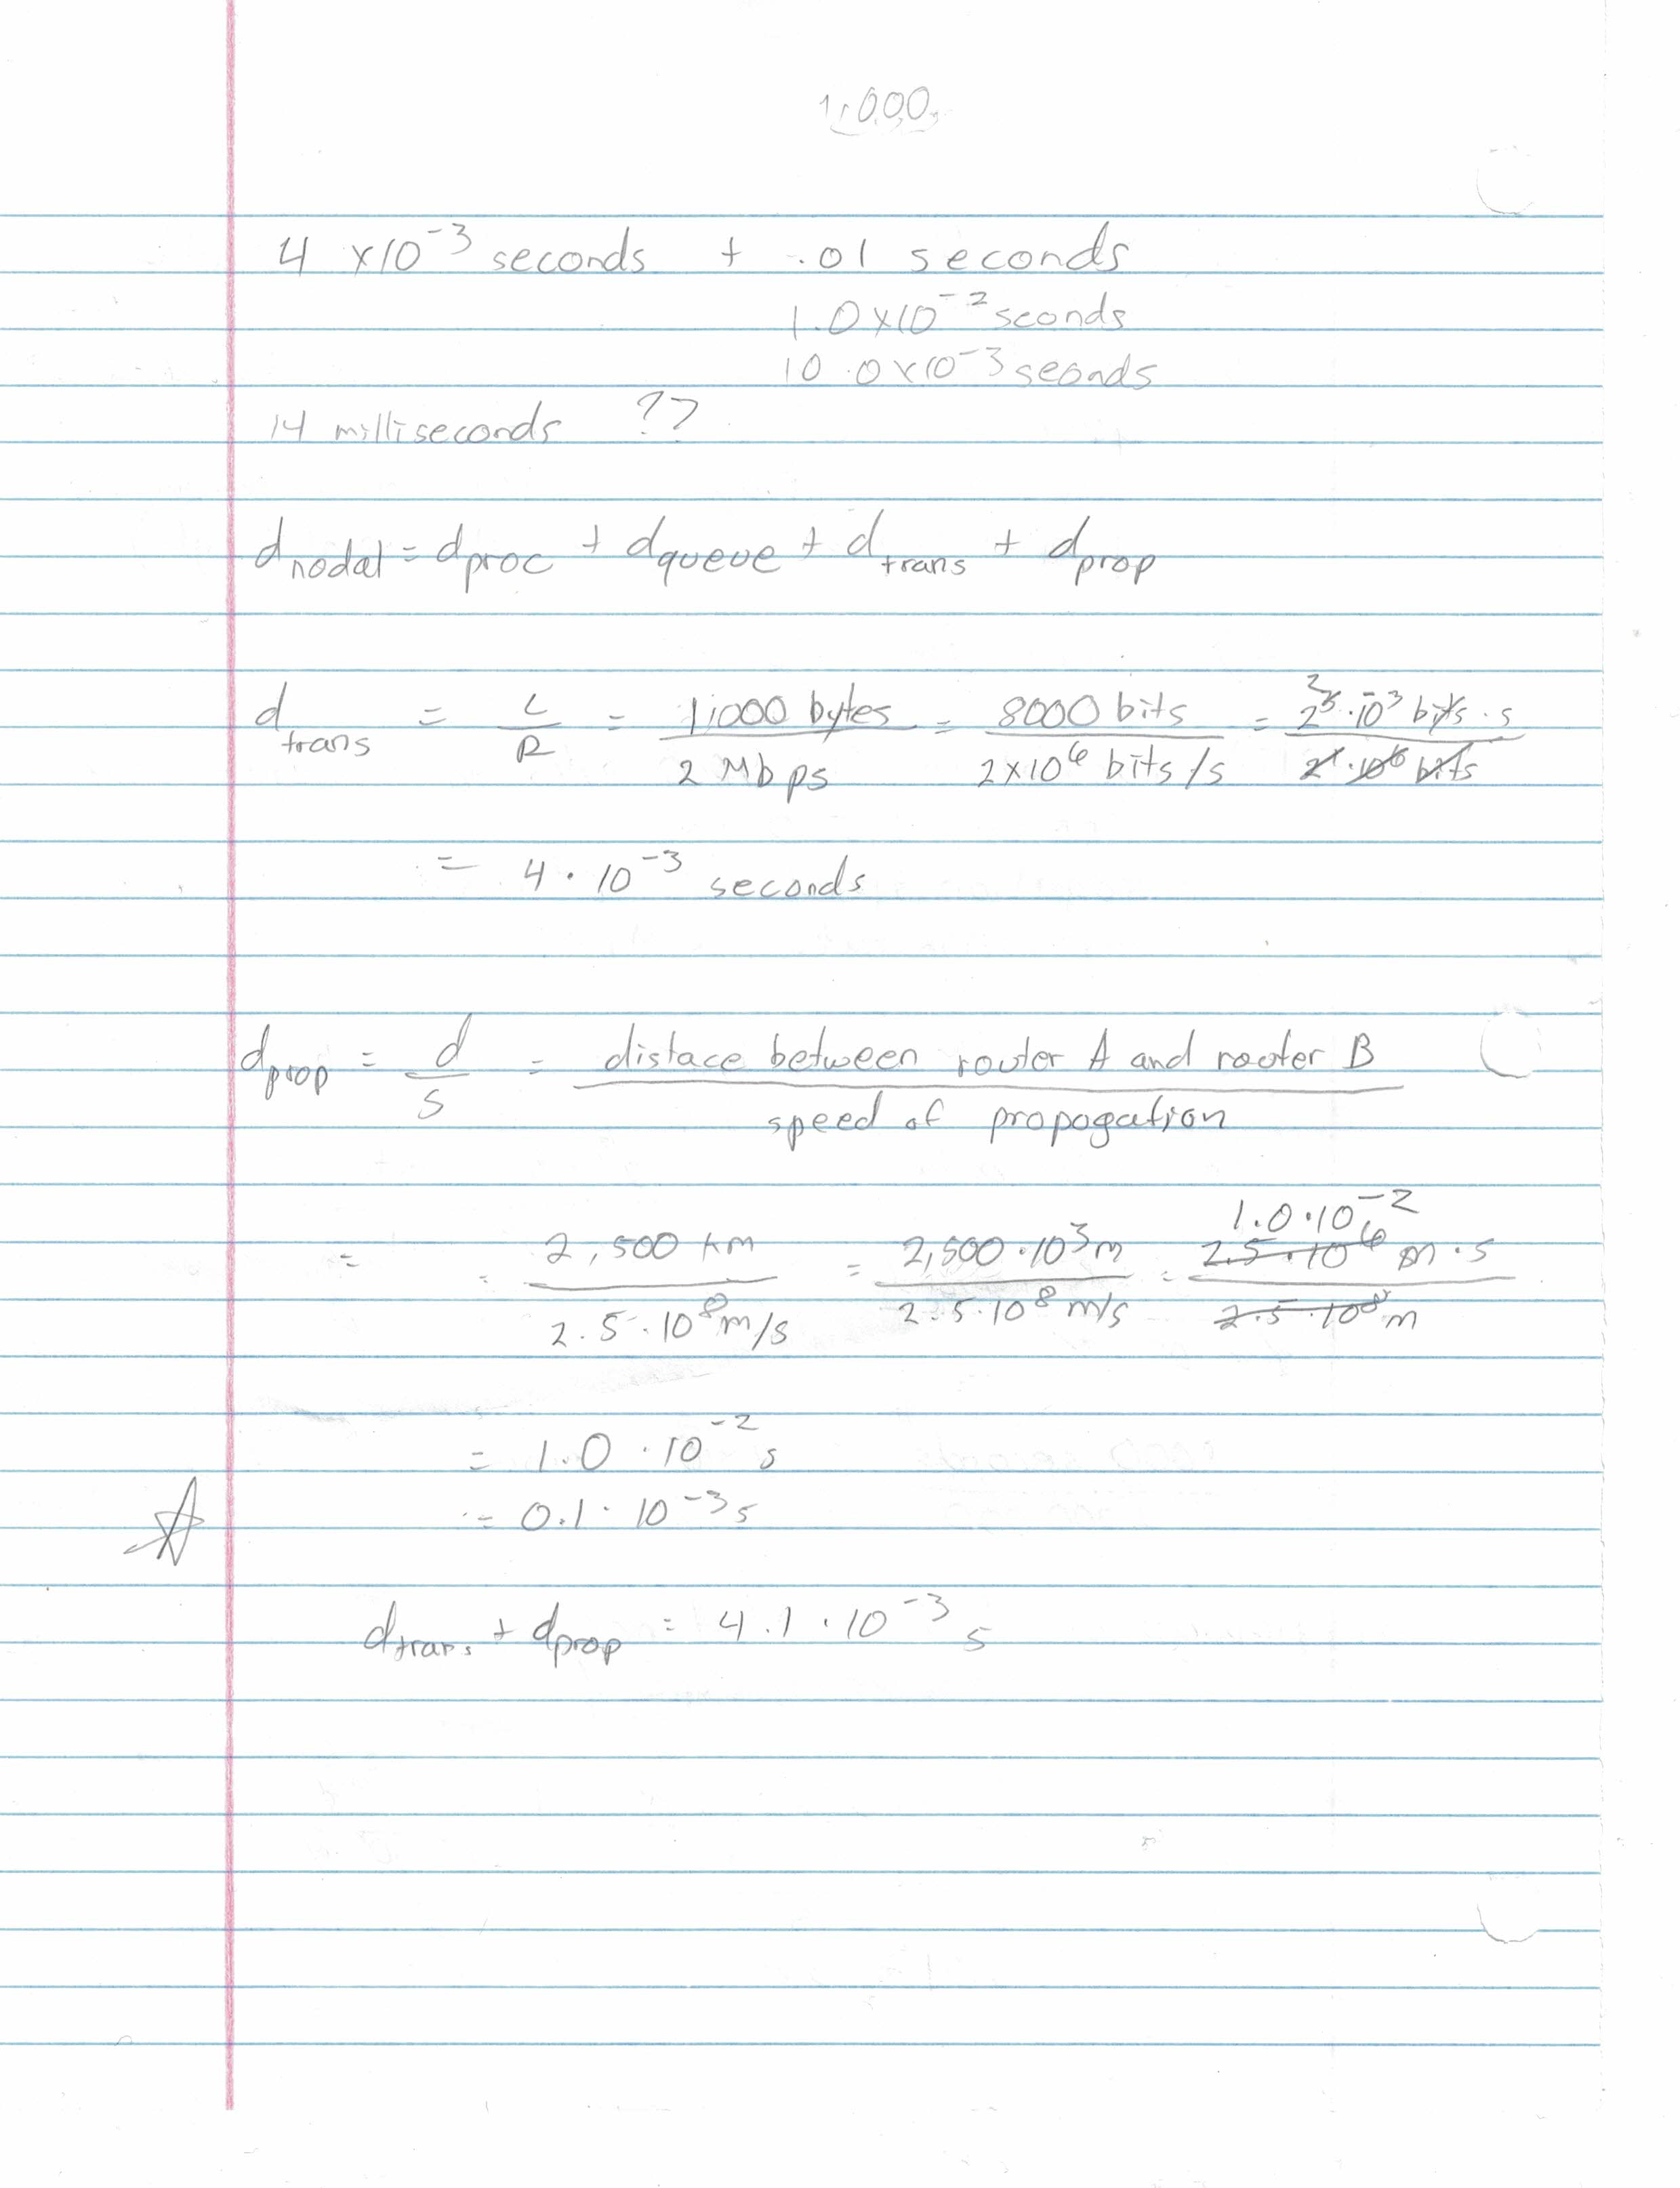 1,000.
4 ×10⁻³ seconds + .01 seconds
1.0×10⁻² seconds
10.0×10⁻³ seonds
14 milliseconds ??
d nodal = d proc + d queue + d trans + d prop
d trans = L/R = 1,000 bytes / 2 Mbps = 8000 bits / 2×10⁶ bits/s = 2³·10³ bits·s / 2¹·10⁶ bits
= 4·10⁻³ seconds
d prop = d/s = distace between router A and router B / speed of propogation
= = 2,500 km / 2.5·10⁸ m/s = 2,500·10³ m / 2.5·10⁸ m/s = 1.0·10⁻² 2.5·10⁶ m·s / 2.5·10⁸ m
= 1.0·10⁻² s
= 0.1·10⁻³ s
d trans + d prop = 4.1·10⁻³ s